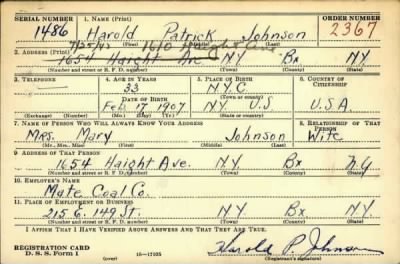 SERIAL NUMBER 1. NAME (Print) ORDER NUMBER
1486 Harold Patrick Johnson 2367
(First) (Middle) (Last)
1610 Haight Ave
2. ADDRESS (Print)
1654 Haight Ave NY Bx NY
(Number and street or R. F. D. number) (Town) (County) (State)
3. TELEPHONE 4. AGE IN YEARS 5. PLACE OF BIRTH 6. COUNTRY OF CITIZENSHIP
33 N.Y.C.
DATE OF BIRTH (Town or county)
Feb 17 1907 NY U.S U.S.A.
(Exchange) (Number) (Mo.) (Day) (Yr.) (State or country)
7. NAME OF PERSON WHO WILL ALWAYS KNOW YOUR ADDRESS 8. RELATIONSHIP OF THAT PERSON
Mrs. Mary Johnson Wife
(Mr., Mrs., Miss) (First) (Middle) (Last)
9. ADDRESS OF THAT PERSON
1654 Haight Ave. N.Y. Bx N.Y
(Number and street or R. F. D. number) (Town) (County) (State)
10. EMPLOYER'S NAME
Mate Coal Co.
11. PLACE OF EMPLOYMENT OR BUSINESS
215 E. 149 St. N.Y. Bx N.Y.
(Number and street or R. F. D. number) (Town) (County) (State)
I AFFIRM THAT I HAVE VERIFIED ABOVE ANSWERS AND THAT THEY ARE TRUE.
REGISTRATION CARD
D. S. S. Form 1 (over) 16—17105 Harold P. Johnson
(Registrant's signature)